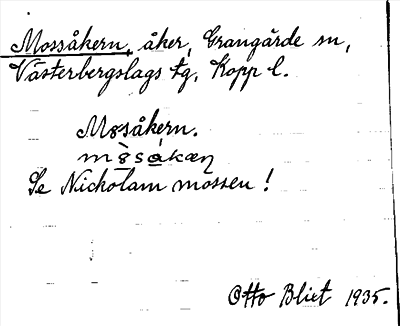 Mossåkern, åker, Grangärde sn,
Västerbergslags tg, Kopp l.
Mosåkern.
Se Nickolam mossen!
Otto Blixt 1935.